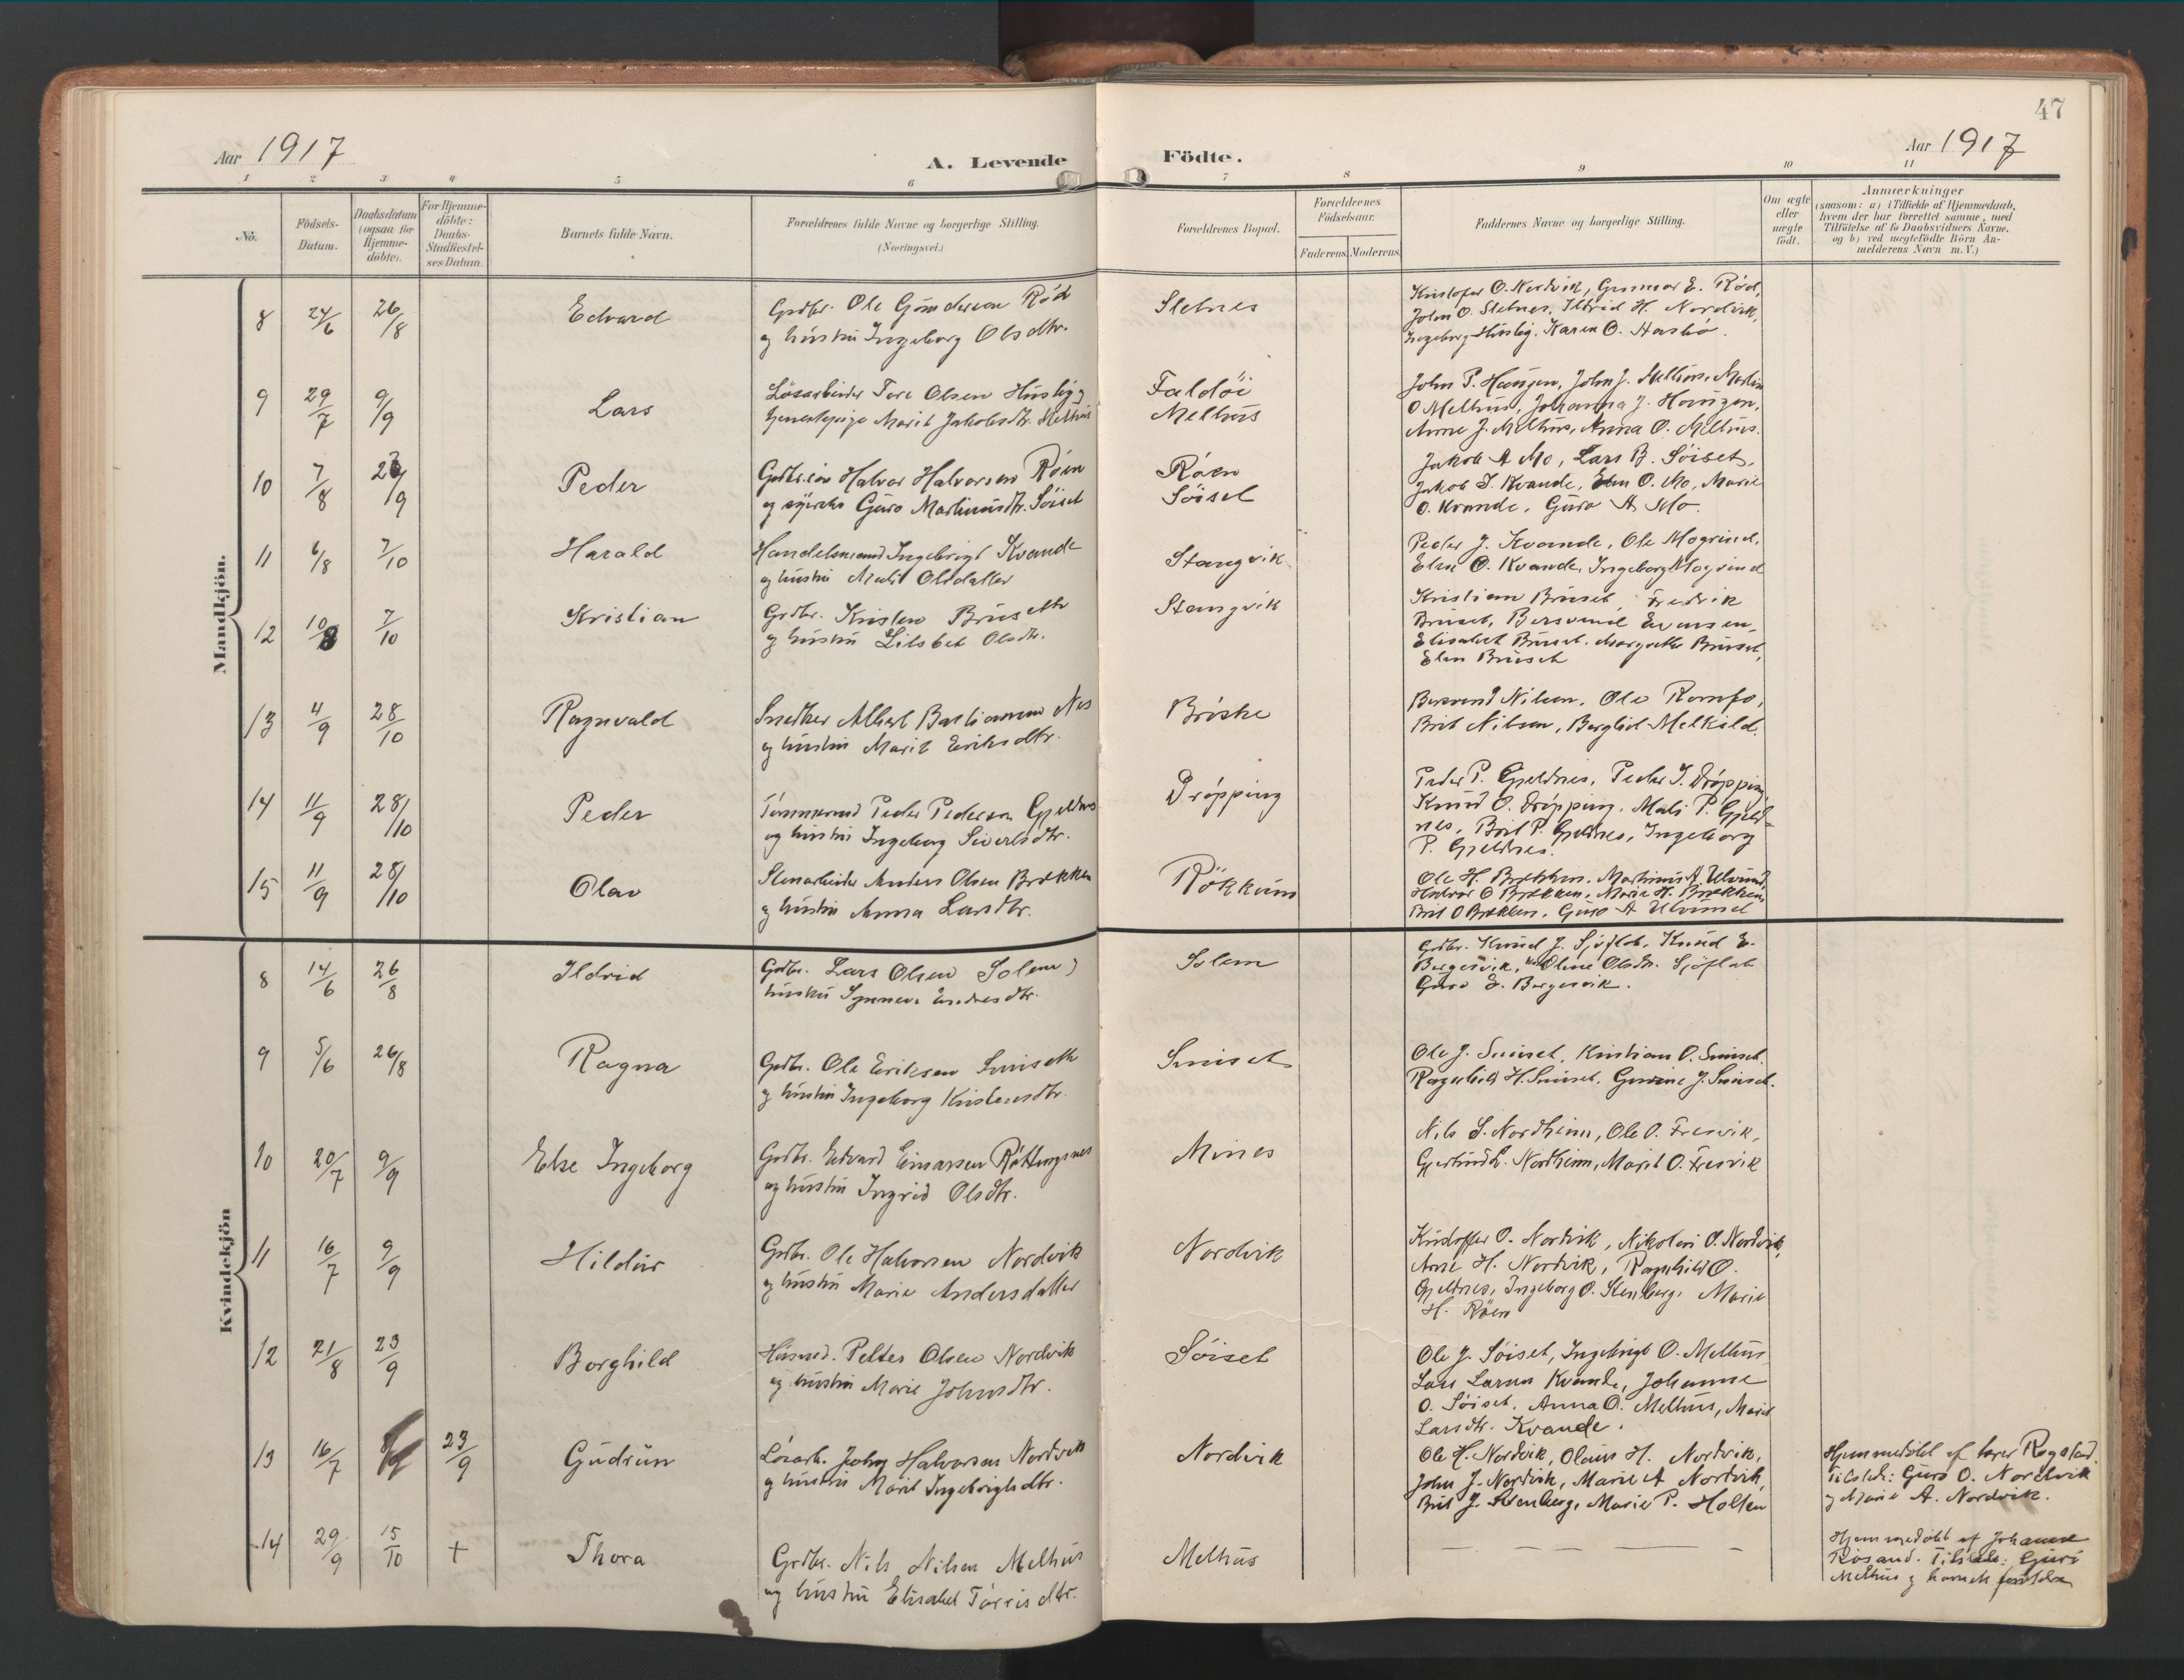 47
Aar 1917
A. Levende Födte.
Aar 1917
1 2 3 4 5 6 7 8 9 10 11
No.
Födsels-Datum.
Daabsdatum (ogsaa for Hjemme-döbte).
For Hjemme-döbte: Daabs-Stadfæstel-ses Datum.
Barnets fulde Navn.
Forældrenes fulde Navne og borgerlige Stilling. (Næringsvei.)
Forældrenes Bopæl.
Forældrenes Födselsaar.
Faderens. Moderens.
Faddernes Navne og borgerlige Stilling.
Om ægte eller uægte födt.
Anmærkninger
(saasom: a) i Tilfælde af Hjemmedaab,
hvem der har forrettet samme, med
Tilföielse af to Daabsvidners Navne,
og b) ved uægtefödte Börn An-
melderens Navn m. V.)
Mandkjön.
8 24/6 26/8 Edvard
Grdbr. Ole Gundersen Röd
og hustru Ingeborg Olsdtr.
Sletnes
Kristofer O. Nordvik, Gunnar E. Röd,
John O. Sletnes, Ildrid H. Nordvik,
Ingeborg Husby, Karen O. Aasbö.
9 29/7 9/9 Lars
Lösarbeider Tore Olsen Husby og
Marit Jakobsdtr. Melhus
Faldöi
Melhus
John P. Haugen, John J. Melhus, Martin
O Melhus, Johanna J. Haugen,
Anne J. Melhus, Anna O. Melhus.
10 7/8 23/9 Peder
Halvor Halvorsen Röen
og Guro Martinusdtr. Söiset
Röen
Söiset
Jakob A Mo, Lars B. Söiset,
Jakob I. Kvande, Elen O. Mo, Marie
O. Kvande, Guro A. Mo.
11 6/8 7/10 Harald
Handelsmand Ingebrigt Kvande
og hustru Malit Olsdatter
Stangvik
Peder J. Kvande, Ole Mogrind,
Elen O. Kvande, Ingeborg Mogrind
12 10/8 7/10 Kristian
Grdbr. Kristen Bruseth
og hustru Lisbet Olsdtr.
Stangvik
Kristian Bruset, Fredrik
Bruset, Bersvend Evensen,
Elisabet Bruset, Margrethe Bruset,
Elen Bruset
13 4/9 28/10 Ragnvald
Snedker Albert Bastiansen Nes
og hustru Marit Eriksdtr.
Bröske
Bersvend Nilsen, Ole Romfo,
Brit Nilsen, Bergliot Melkild.
14 11/9 28/10 Peder
Tömmermd Peder Pedersen Gjeldnes
og hustru Ingeborg Sivertsdtr.
Dröpping
Peder P. Gjeldnes, Peder I. Dröpping
Knud O. Dröpping, Mali P. Gjeld-
nes, Brit P. Gjeldnes, Ingeborg
P. Gjeldnes.
15 11/9 28/10 Olav
Stenarbeider Anders Olsen Brækken
og hustru Anna Larsdtr.
Rökkum
Ole H. Brækken, Martinus A Ulvund,
Halvor O Brækken, Marie H. Brækken,
Brit O Brækken, Guro A Ulvund
Kvindekjön
8 14/6 26/8 Ildrid
Grdbr. Lars Olsen Solem
hustru Synneve Endresdtr.
Solem
Grdbr. Knud J. Sjöflot, Knud E.
Bergesvik, Oline Olsdtr. Sjöflot
Guro E. Bergesvik.
9 5/6 26/8 Ragna
Grdbr. Ole Eriksen Smiseth
og hustru Ingeborg Kristensdtr.
Smiset
Ole J. Smiset, Kristian O. Smiset.
Ragnhild H. Smiset, Gurine J. Smiset.
10 20/7 9/9 Else Ingeborg
Grdbr. Edvard Einarsen Röttingsnes
og hustru Ingrid Olsdtr.
Mines
Nils L. Nordheim, Ole O. Fresvik,
Gjertrud L. Nordheim, Marit O. Fresvik
11 16/7 9/9 Hildur
Grdbr. Ole Halvorsen Nordvik
og hustru Marie Andersdatter
Nordvik
Kristoffer O. Nordvik, Nikolai O. Nordvik,
Arne H. Nordvik, Ragnhild O.
Gjeldnes, Ingeborg O. Stenberg, Marie
H. Röen
12 21/8 23/9 Borghild
Husmd. Petter Olsen Nordvik
og hustru Marie Johnsdtr.
Söiset
Ole J. Söiset, Ingebrigt O. Melhus,
Lars Larsen Kvande, Johanne
O. Söiset, Anna O. Melhus, Marit
Larsdtr. Kvande.
13 16/7 23/9 Gudrun
Lösarb. John Halvorsen Nordvik
og hustru Marit Ingebrigtsdtr.
Nordvik
Ole H. Nordvik, Olaus H. Nordvik,
John J. Nordvik, Marie A Nordvik,
Brit J. Stenberg, Marie P. Holten
Hjemmedöbt af lærer Rogstad.
Tilsted: Guro O. Nordvik
og Marie A. Nordvik.
14 29/9 15/10 + Thora
Grdbr. Nils Nilsen Melhus
og hustru Elisabet Torrisdtr.
Melhus
— — — —
Hjemmedöbt af Johanne
Rosand. Tilstede: Guri
Melhus og barnets forældre